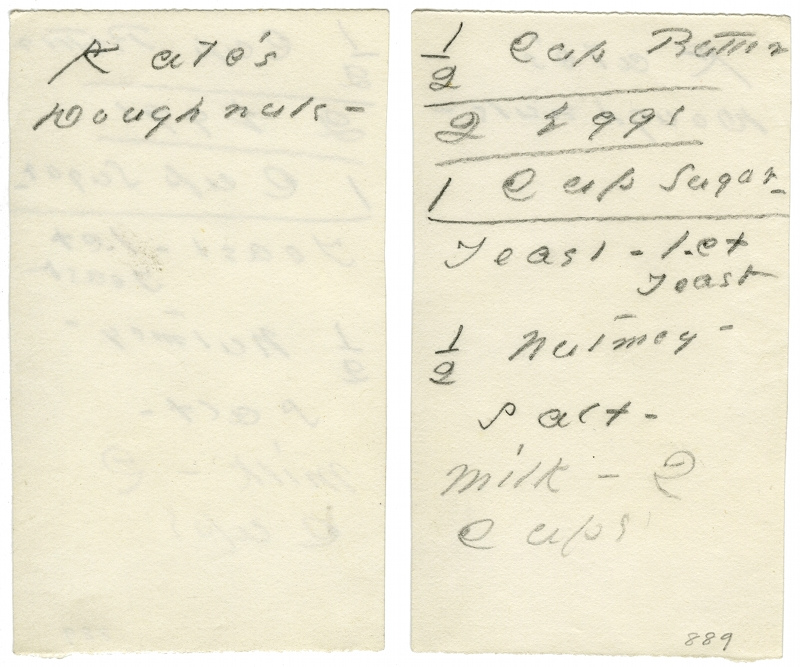 Kate's
Doughnuts -
1/2 Cup Butter
2 Eggs
1 Cup Sugar -
Yeast - 1 . ct
Yeast
1/2 Nutmeg -
Salt -
Milk - 2
Cups
889